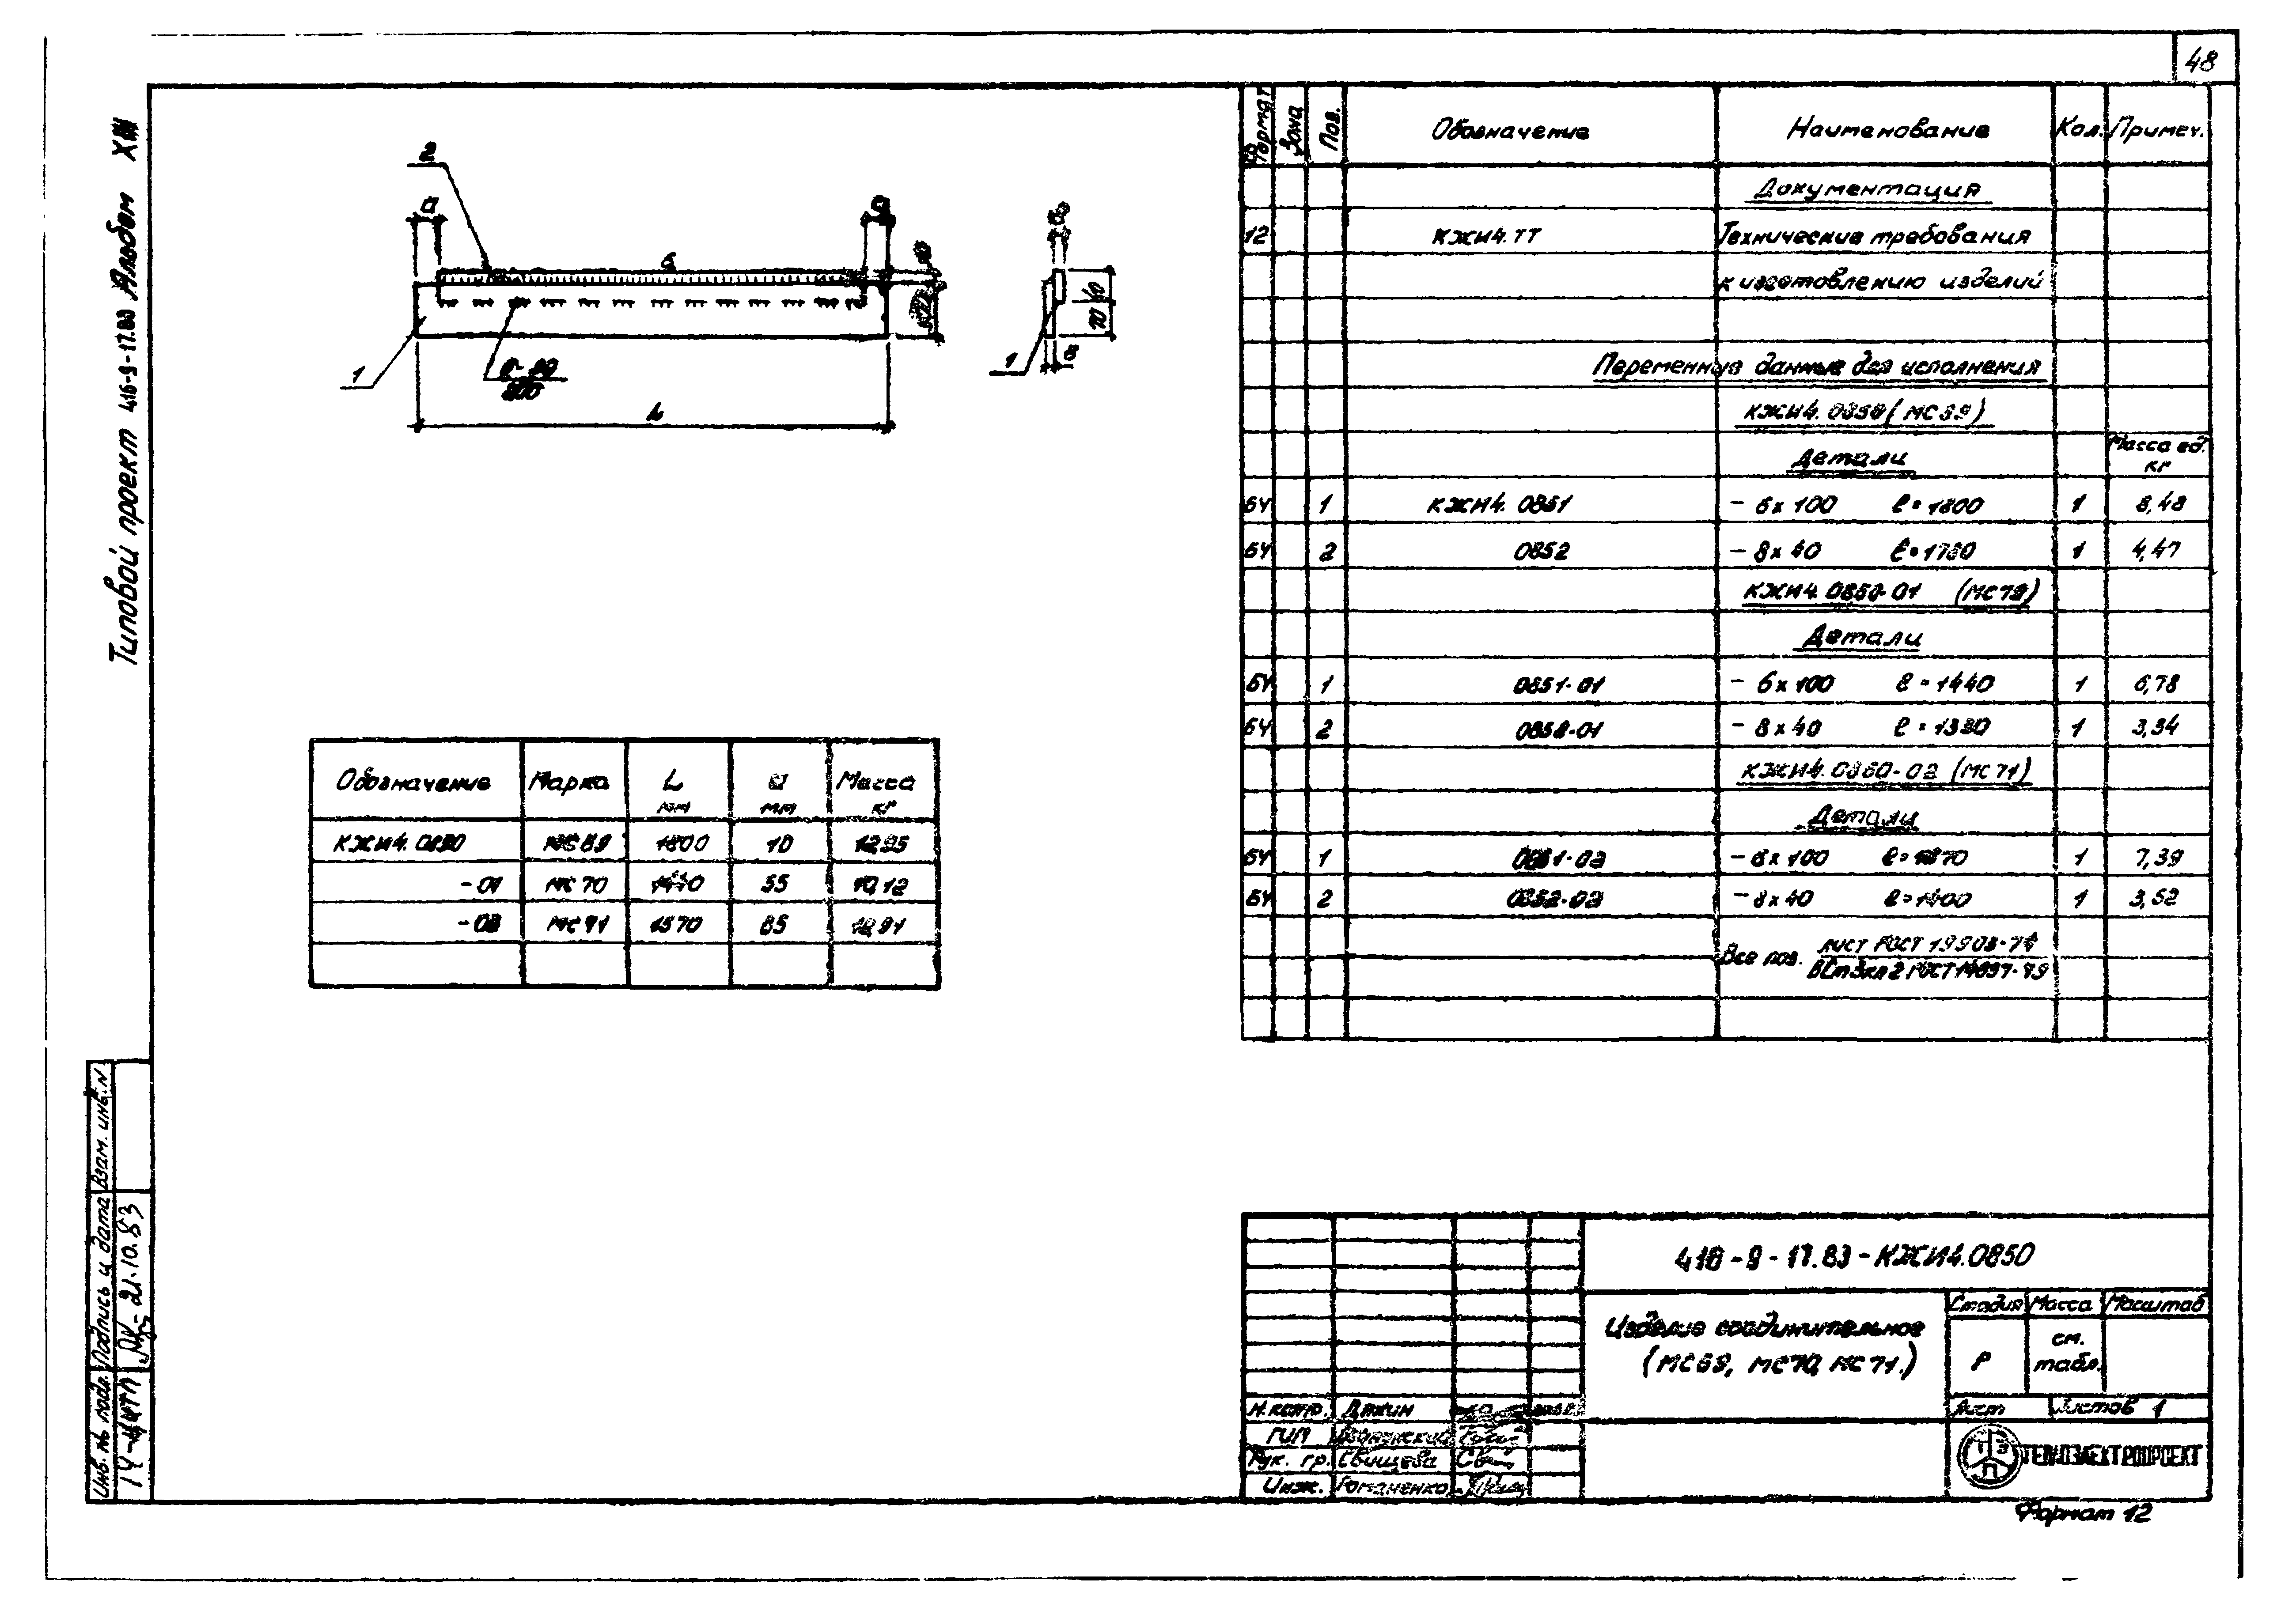 48
Типовой проект 416-9-17.83 Альбом
2
а
а
6
1
L
1
8
40
70
Обозначение Марка L мм а мм Масса кг
КЖИ4.0850 МС69 1800 10 12,95
-01 МС70 1440 55 10,12
-02 МС71 1570 85 10,91
Формат Зона Поз. Обозначение Наименование Кол. Примеч.
Документация
12 КЖИ4.ТТ Технические требования
к изготовлению изделий
Переменные данные для исполнения
КЖИ4.0850 (МС69)
Детали Масса ед. кг
БЧ 1 КЖИ4.0851 - 6х100 ℓ=1800 1 8,48
БЧ 2 0852 - 8х40 ℓ=1780 1 4,47
КЖИ4.0850-01 (МС70)
Детали
БЧ 1 0851-01 - 6х100 ℓ=1440 1 6,78
БЧ 2 0852-01 - 8х40 ℓ=1330 1 3,34
КЖИ4.0850-02 (МС71)
Детали
БЧ 1 0851-02 - 6х100 ℓ=1570 1 7,39
БЧ 2 0852-02 - 8х40 ℓ=1400 1 3,52
Все поз. лист ГОСТ 19903-74
ВСт3кп2 ГОСТ 14637-79
416-9-17.83-КЖИ4.0850
Изделие соединительное
(МС69, МС70, МС71.)
Стадия Масса Масштаб
Р см. табл.
Лист Листов 1
Н.контр. Дажин
ГИП
Рук. гр. Свищева
Инж. Романенко
ТЕПЛОЭЛЕКТРОПРОЕКТ
Формат 12
Взам. инв. N
Подпись и дата 21.10.83
Инв. № подл.